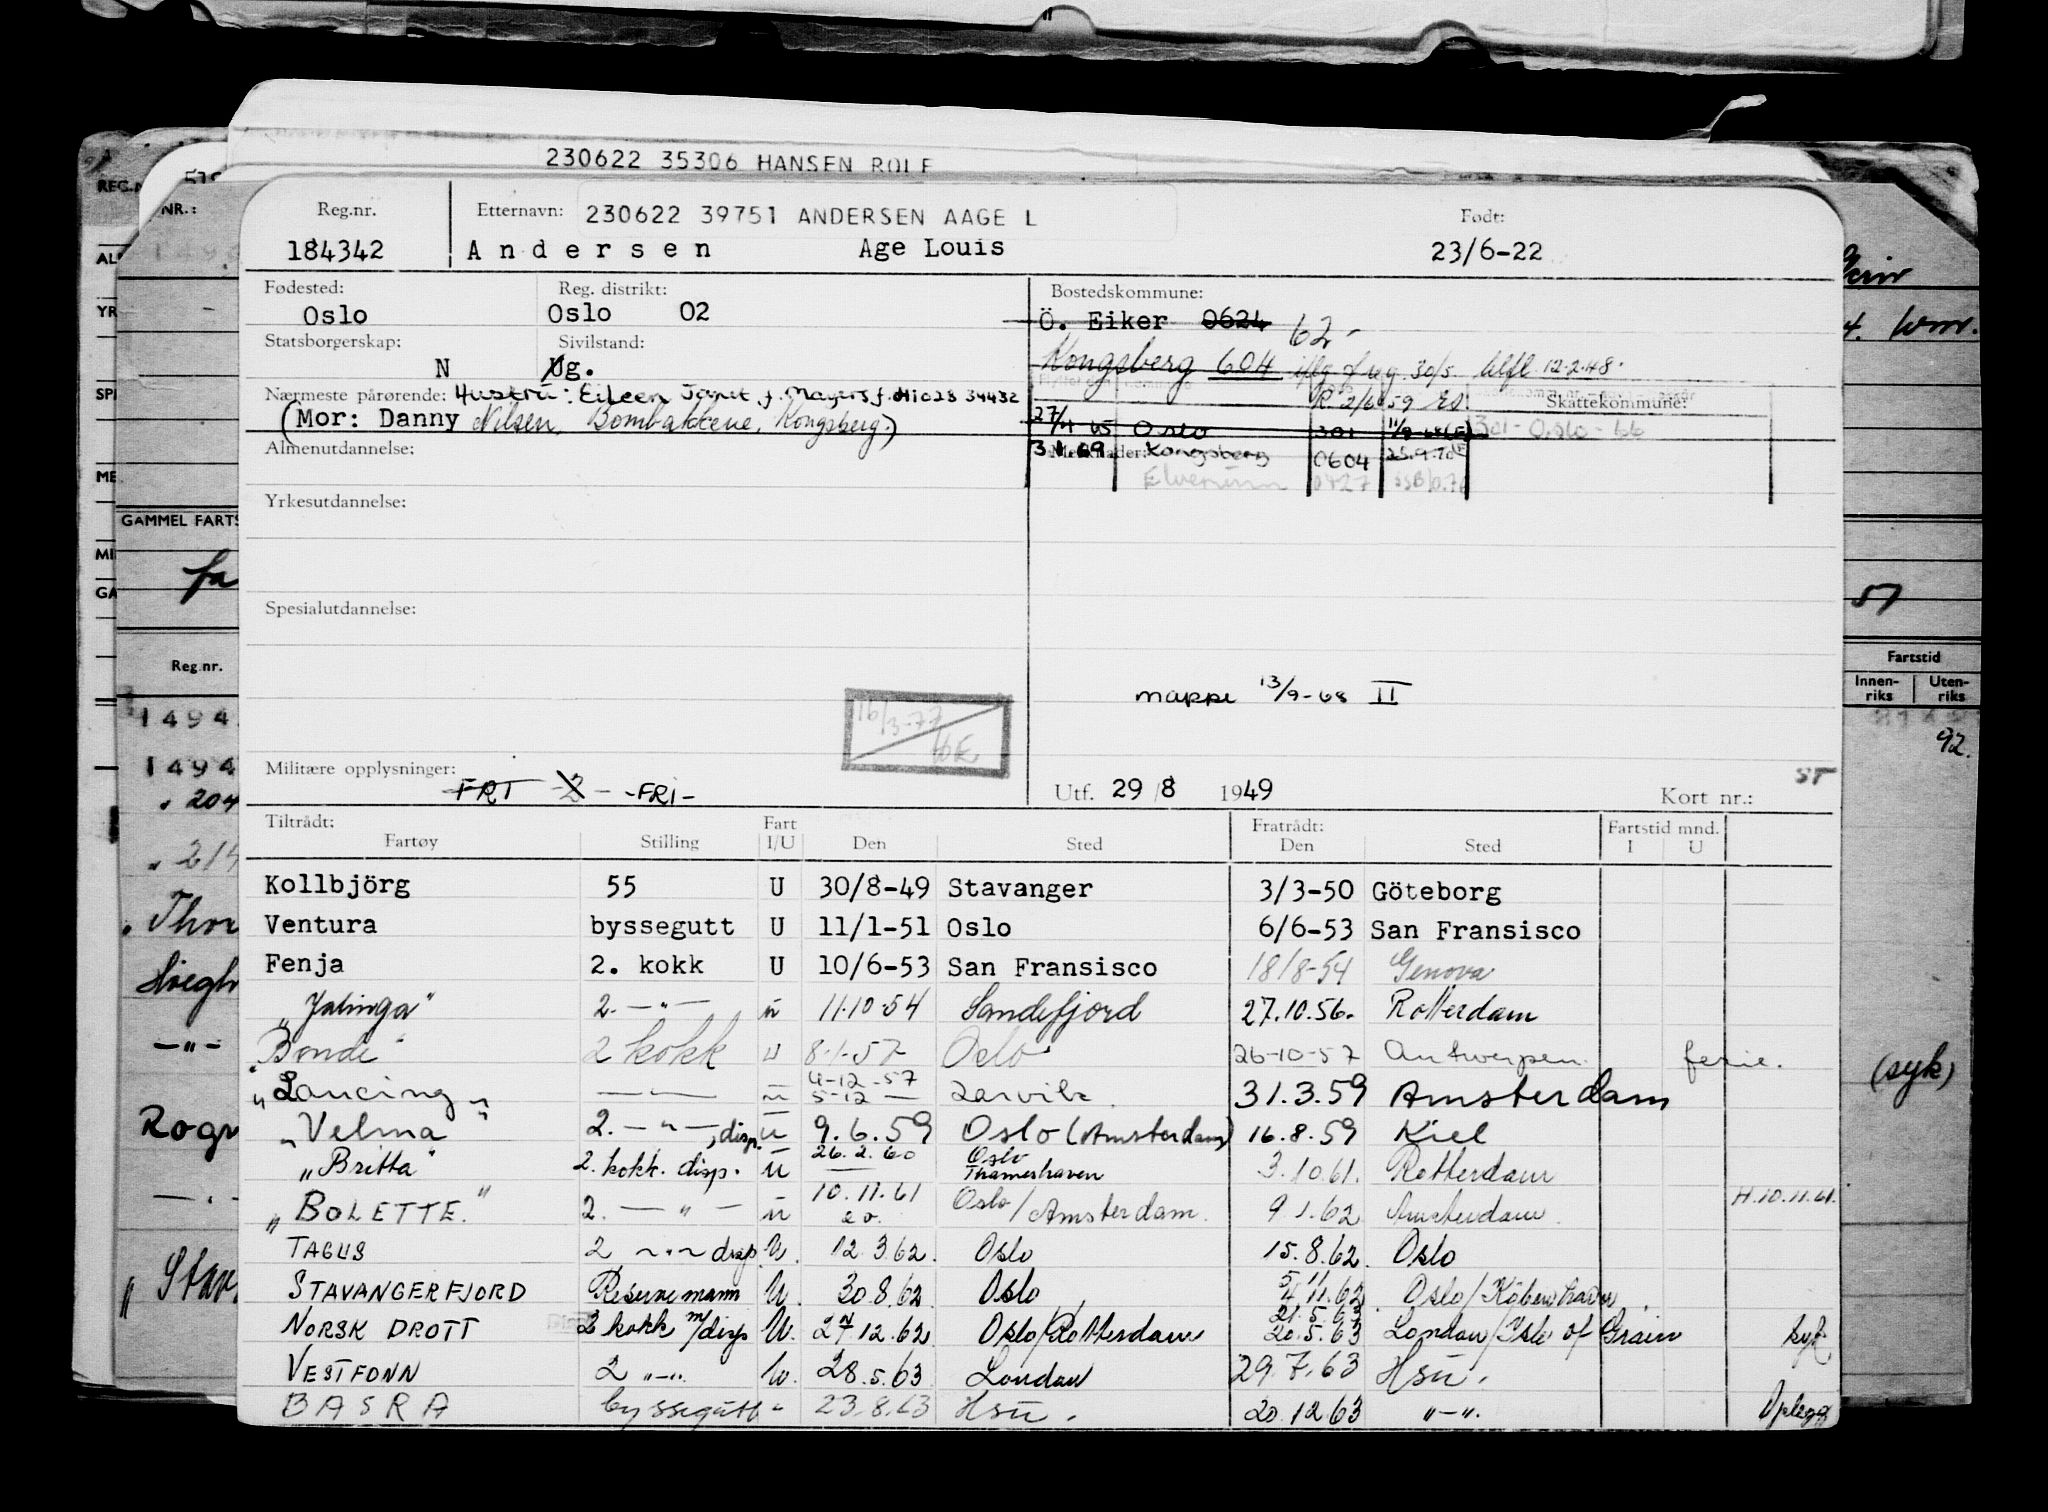 230622 35306 HANSEN ROLF
Reg.nr. Etternavn: 230622 39751 ANDERSEN AAGE L Født:
184342 Andersen Age Louis 23/6-22
Fødested: Reg. distrikt: Bostedskommune:
Oslo Oslo 02 Ö. Eiker 0624 62-
Statsborgerskap: Sivilstand:
N Ug. Kongsberg 604 iflg. 30/5 12.2.48.
Nærmeste pårørende: Hustru: Eileen Janet f. Mayers f.
R 2/6 59 Skattekommune:
(Mor: Danny Nilsen, Bombakkene, Kongsberg.)
27/4 65 Oslo 301 301-Oslo-66
Almenutdannelse:
69 Kongsberg 0604 25.9.70
Elverum 0427
Yrkesutdannelse:
Spesialutdannelse:
mappe 13/9-68 II
16/3-77
Militære opplysninger: FRT -2- -FRI-
Utf. 29/8 1949 Kort nr.: ST
Tiltrådt: Fart Fratrådt: Fartstid mnd.
Fartøy Stilling I/U Den Sted Den Sted I U
Kollbjörg 55 U 30/8-49 Stavanger 3/3-50 Göteborg
Ventura byssegutt U 11/1-51 Oslo 6/6-53 San Fransisco
Fenja 2. kokk U 10/6-53 San Fransisco 18/8-54 Genova
"Jalinga" 2. -"- u 11.10.54 Sandefjord 27.10.56. Rotterdam
"Bonde" 2 kokk u 8-1-57 Oslo 26-10-57 Antwerpen. ferie.
"Lancing" -"- u 4-12-57 5-12 - Larvik. 31.3.59 Amsterdam
"Velma" 2. -"-, disp. u 9.6.59 Oslo (Amsterdam) 16.8.59 Kiel
"Britta" 2. kokk. disp. u 26.2.60 Oslo Thameshaven 3.10.61. Rotterdam
"BOLETTE." 2. -"- u 10.11.61 Oslo/Amsterdam. 9.1.62 Amsterdam. H.10.11.61.
TAGUS 2 -"- disp U. 12.3.62. Oslo 15.8.62 Oslo
STAVANGERFJORD Reservemann U. 30.8.62 Oslo 5/4 11.62. Oslo/Köbenhavn.
NORSK DROTT 2 kokk m/disp U. 27.12.62 Oslo/Rotterdam 21.5.63 20.5.63 London/Isle of Grain syk
VESTFONN 2 -"- U. 28.5.63 London 29.7.63 Hsu.
BASRA byssegutt " 23.8.63 Hsu. 20.12.63 -"-. Oplegg
NR.:
GAMMEL FARTS
Reg.nr.
1494
1494
204
214
Rogn
57
Fartstid
Innen-riks Uten-riks
92.
(syk)